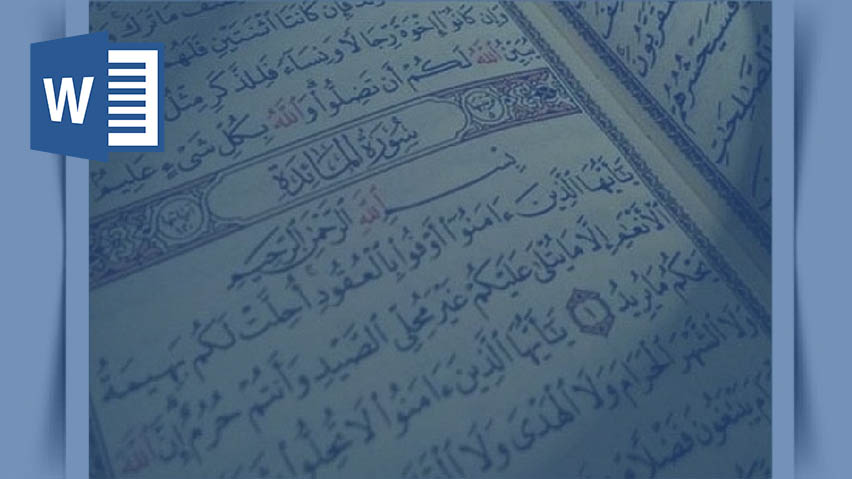 W
فَإِن كَانَتَا ٱثْنَتَيْنِ فَلَهُمَا
وَإِن كَانُوٓا۟ إِخْوَةً رِّجَالًا وَنِسَآءً فَلِلذَّكَرِ مِثْلُ
يُبَيِّنُ ٱللَّهُ لَكُمْ أَن تَضِلُّوا۟ وَٱللَّهُ بِكُلِّ شَىْءٍ عَلِيمٌ
سُورَةُ المَائِدَةِ
بِسْمِ ٱللَّهِ ٱلرَّحْمَٰنِ ٱلرَّحِيمِ
يَٰٓأَيُّهَا ٱلَّذِينَ ءَامَنُوٓا۟ أَوْفُوا۟ بِٱلْعُقُودِ أُحِلَّتْ لَكُم بَهِيمَةُ
ٱلْأَنْعَٰمِ إِلَّا مَا يُتْلَىٰ عَلَيْكُمْ غَيْرَ مُحِلِّى ٱلصَّيْدِ وَأَنتُمْ حُرُمٌ إِنَّ ٱللَّهَ
يَحْكُمُ مَا يُرِيدُ ١ يَٰٓأَيُّهَا ٱلَّذِينَ ءَامَنُوا۟ لَا تُحِلُّوا۟
وَلَا ٱلشَّهْرَ ٱلْحَرَامَ وَلَا ٱلْهَدْىَ وَلَا
يَبْتَغُونَ فَضْلًا